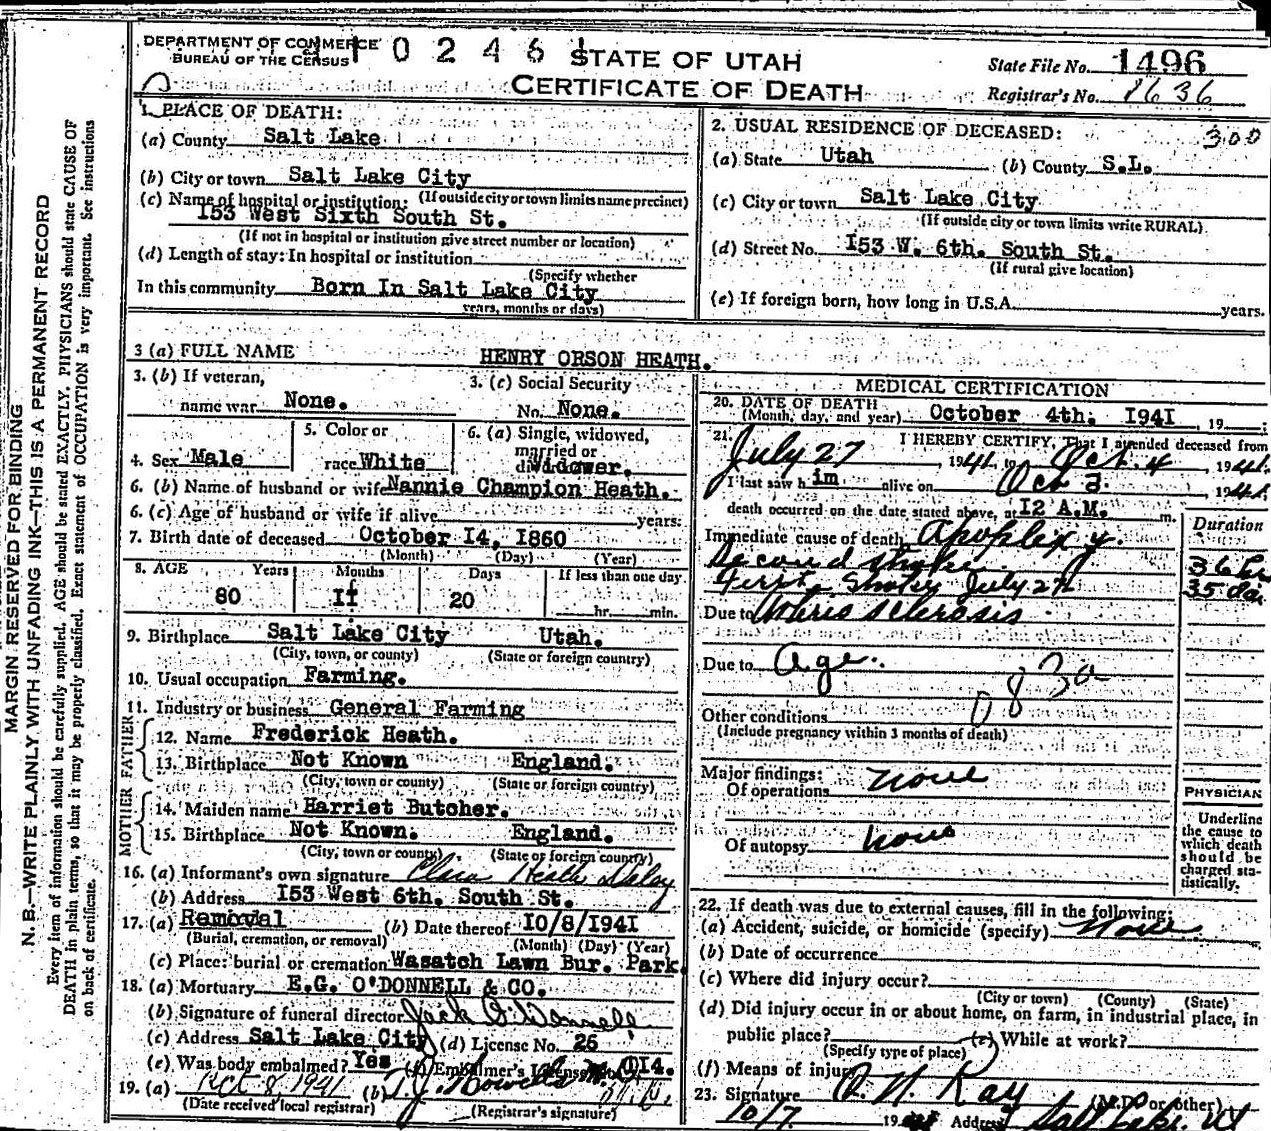 MARGIN RESERVED FOR BINDING
N. B.—WRITE PLAINLY WITH UNFADING INK—THIS IS A PERMANENT RECORD
Every item of information should be carefully supplied. AGE should be stated EXACTLY. PHYSICIANS should state CAUSE OF
DEATH in plain terms, so that it may be properly classified. Exact statement of OCCUPATION is very important. See instructions
on back of certificate.
DEPARTMENT OF COMMERCE
BUREAU OF THE CENSUS
0 2 4 6
STATE OF UTAH
CERTIFICATE OF DEATH
State File No. 1496
Registrar's No. 1636
1. PLACE OF DEATH:
(a) County Salt Lake
(b) City or town Salt Lake City
(c) Name of hospital or institution: (If outside city or town limits name precinct)
I53 West Sixth South St.
(If not in hospital or institution give street number or location)
(d) Length of stay: In hospital or institution
(Specify whether
In this community Born In Salt Lake City
years, months or days)
2. USUAL RESIDENCE OF DECEASED: 300
(a) State Utah (b) County S.L.
(c) City or town Salt Lake City
(If outside city or town limits write RURAL)
(d) Street No. I53 W. 6th. South St.
(If rural give location)
(e) If foreign born, how long in U.S.A. years.
3 (a) FULL NAME HENRY ORSON HEATH.
3. (b) If veteran,
name war None.
3. (c) Social Security
No. None.
4. Sex Male
5. Color or
race White
6. (a) Single, widowed,
married or
divorced Widower.
6. (b) Name of husband or wife Nannie Champion Heath.
6. (c) Age of husband or wife if alive years.
7. Birth date of deceased October I4, I860
(Month) (Day) (Year)
8. AGE Years Months Days If less than one day
80 II 20 hr. min.
9. Birthplace Salt Lake City Utah.
(City, town, or county) (State or foreign country)
10. Usual occupation Farming.
11. Industry or business General Farming
FATHER
12. Name Frederick Heath.
13. Birthplace Not Known England.
(City, town or county) (State or foreign country)
MOTHER
14. Maiden name Harriet Butcher.
15. Birthplace Not Known. England.
(City, town or county) (State or foreign country)
16. (a) Informant's own signature Heath
(b) Address I53 West 6th. South St.
17. (a) Removal (b) Date thereof IO/8/I94I
(Burial, cremation, or removal) (Month) (Day) (Year)
(c) Place: burial or cremation Wasatch Lawn Bur. Park.
18. (a) Mortuary E.G. O'DONNELL & CO.
(b) Signature of funeral director Jack O'Donnell
(c) Address Salt Lake City (d) License No. 25
(e) Was body embalmed? Yes (f) Embalmer's License No. I4.
19. (a) Oct 8, 1941 (b) T.J. Howells
(Date received local registrar) (Registrar's signature)
MEDICAL CERTIFICATION
20. DATE OF DEATH
(Month, day, and year) October 4th. I94I, 19 ;
21. I HEREBY CERTIFY, That I attended deceased from
July 27, 1941, to Oct. 4, 1941.
I last saw h im alive on Oct 3, 1941
death occurred on the date stated above, at I2 A.M. m.
Immediate cause of death Apoplexy.
Duration
Second stroke 36 hr
First Stroke July 27 35 da
Due to Arterio sclerosis.
Due to Age.
083a
Other conditions
(Include pregnancy within 3 months of death)
Major findings:
Of operations none
Of autopsy none
PHYSICIAN
Underline
the cause to
which death
should be
charged sta-
tistically.
22. If death was due to external causes, fill in the following:
(a) Accident, suicide, or homicide (specify) None
(b) Date of occurrence
(c) Where did injury occur?
(City or town) (County) (State)
(d) Did injury occur in or about home, on farm, in industrial place, in
public place? (e) While at work?
(Specify type of place)
(f) Means of injury
23. Signature Kay (M.D. or other)
10/7 19 Address Salt Lake, Ut